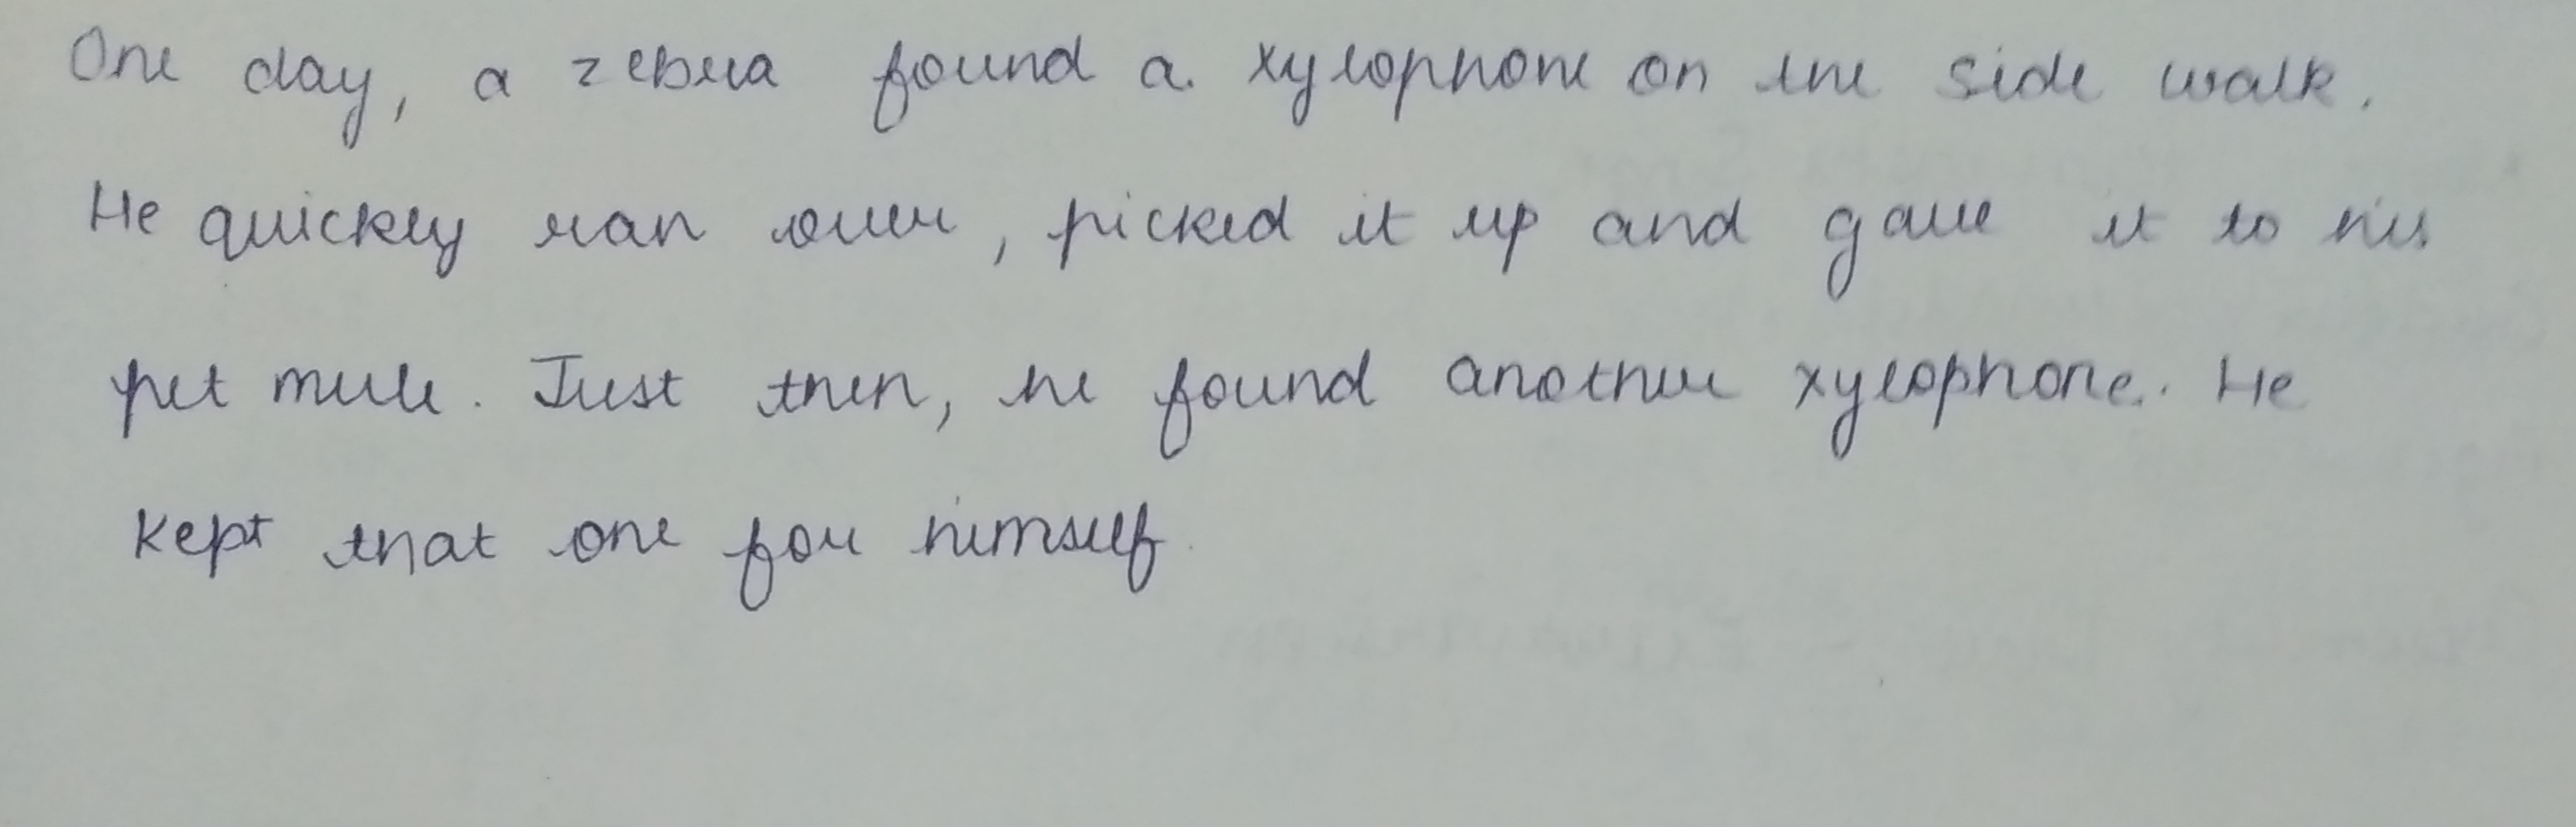 One day, a zebra found a xylophone on the side walk.
He quickly ran over, picked it up and gave it to his
pet mule. Just then, he found another xylophone. He
kept that one for himself.